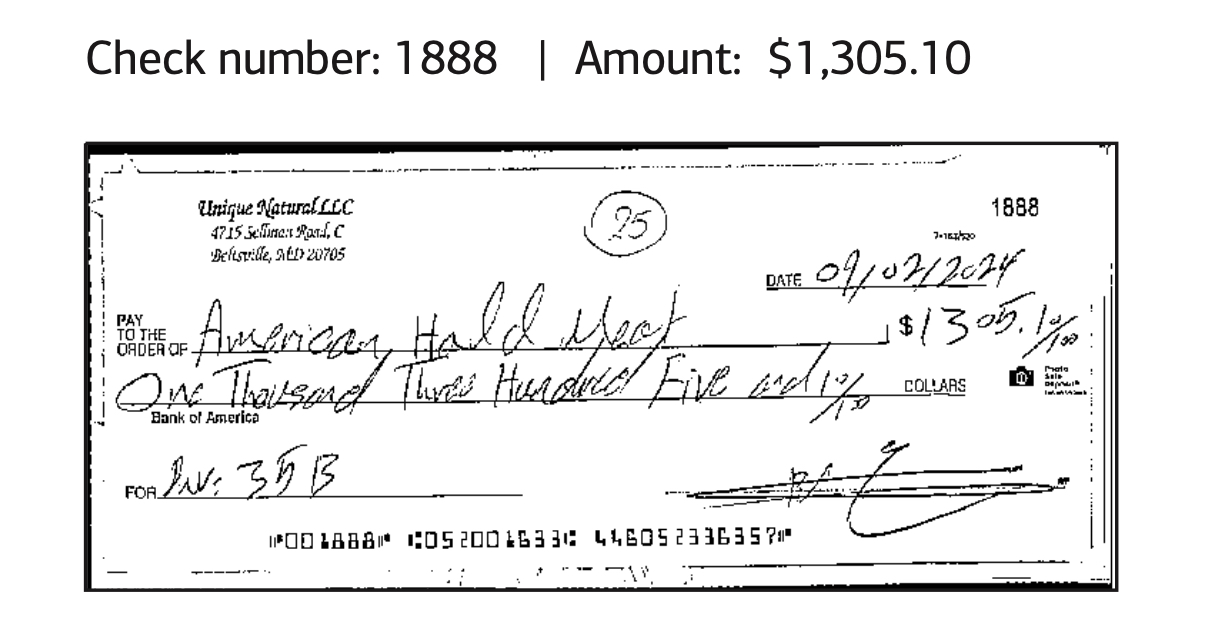 Check number: 1888 | Amount: $1,305.10
Unique Natural LLC
4715 Sellman Road, C
Beltsville, MD 20705
25
1888
7-163/520
DATE 09/02/2024
PAY TO THE ORDER OF American Hald Meat $1305.10/100
One Thousand Three Hundred Five and 10/100 DOLLARS
Photo Safe Deposit
Bank of America
FOR Inv: 35B
⑈001888⑈ ⑆052001633⑆ 446052336357⑈